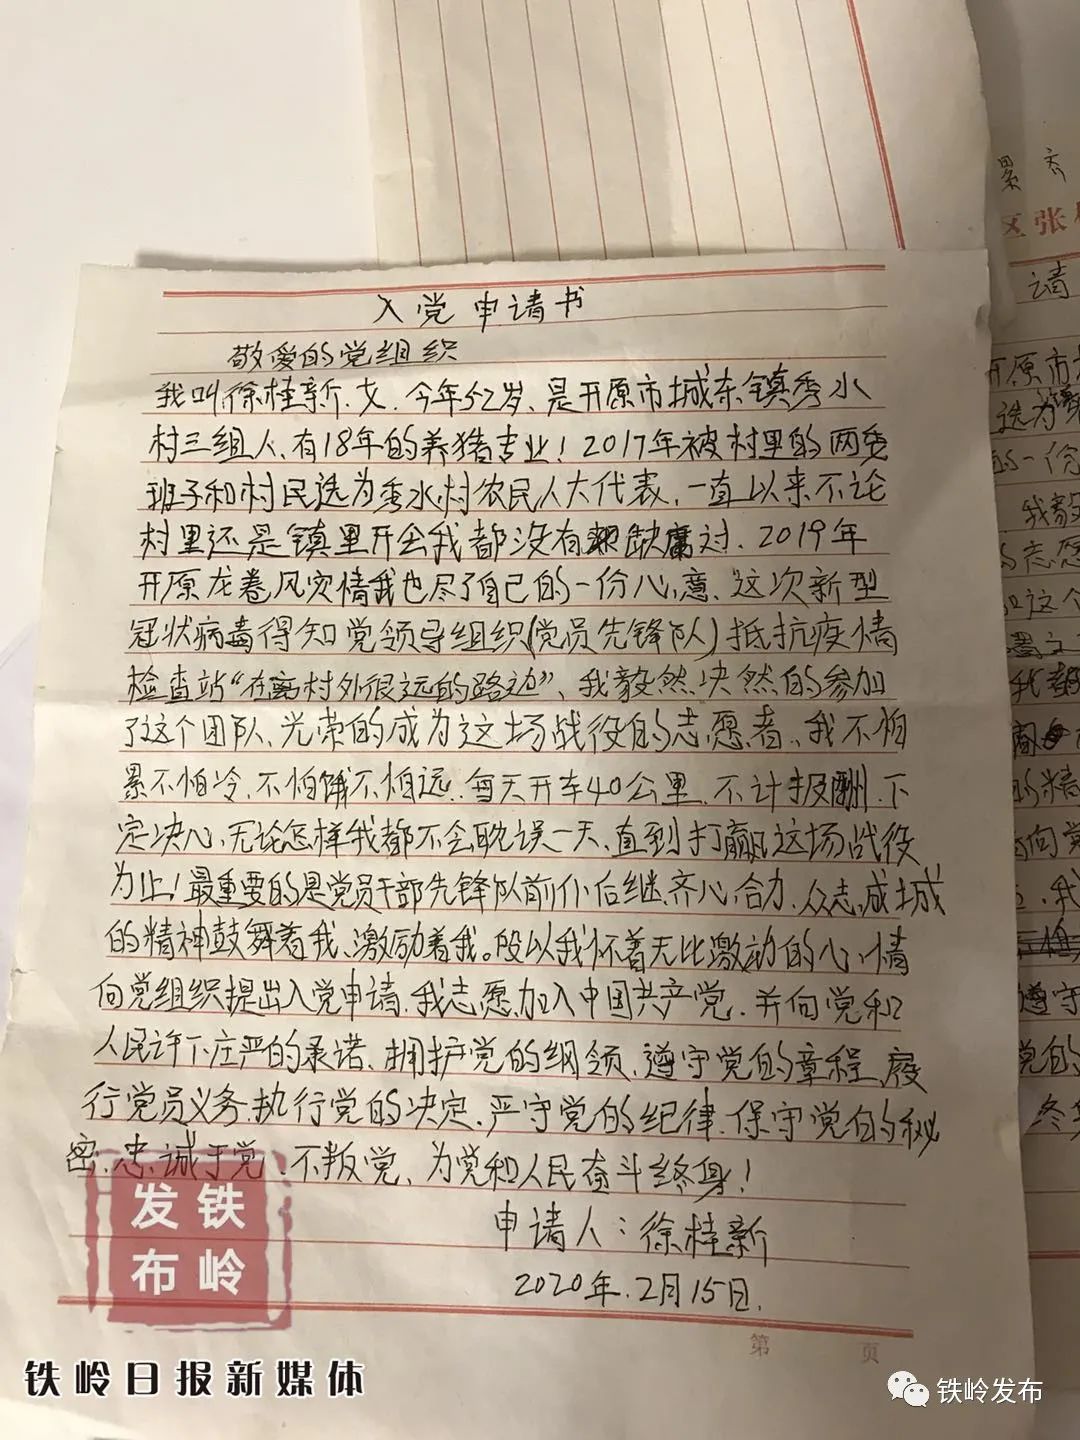 入党申请书
敬爱的党组织
我叫徐桂新、女.今年52岁、是开原市城东镇秀水
村三组人、有18年的养猪专业！2017年被村里的两委
班子和村民选为秀水村农民人大代表、一直以来不论
村里还是镇里开会我都没有缺席过、2019年
开原龙卷风灾情我也尽了自己的一份心意、这次新型
冠状病毒得知党领导组织(党员先锋队)抵抗疫情
检查站“在离村外很远的路边”、我毅然决然的参加
了这个团队、光荣的成为这场战役的志愿者、我不怕
累不怕冷、不怕饿不怕远、每天开车40公里、不计报酬、下
定决心、无论怎样我都不会耽误一天、直到打赢这场战役
为止！最重要的是党员干部先锋队前仆后继、齐心合力、众志成城
的精神鼓舞着我、激励着我。所以我怀着无比激动的心情
向党组织提出入党申请、我志愿加入中国共产党、并向党和
人民许下庄严的承诺、拥护党的纲领、遵守党的章程、履
行党员义务、执行党的决定、严守党的纪律、保守党的秘
密、忠诚于党、不叛党、为党和人民奋斗终身！
申请人：徐桂新
2020年.2月15日.
第 页
累 齐
区张
请
开原市城
选为秀
的一份
我毅
志愿
这个
我都
的精
向党
我
遵守
党的
终
发铁
布岭
铁岭日报新媒体
铁岭发布